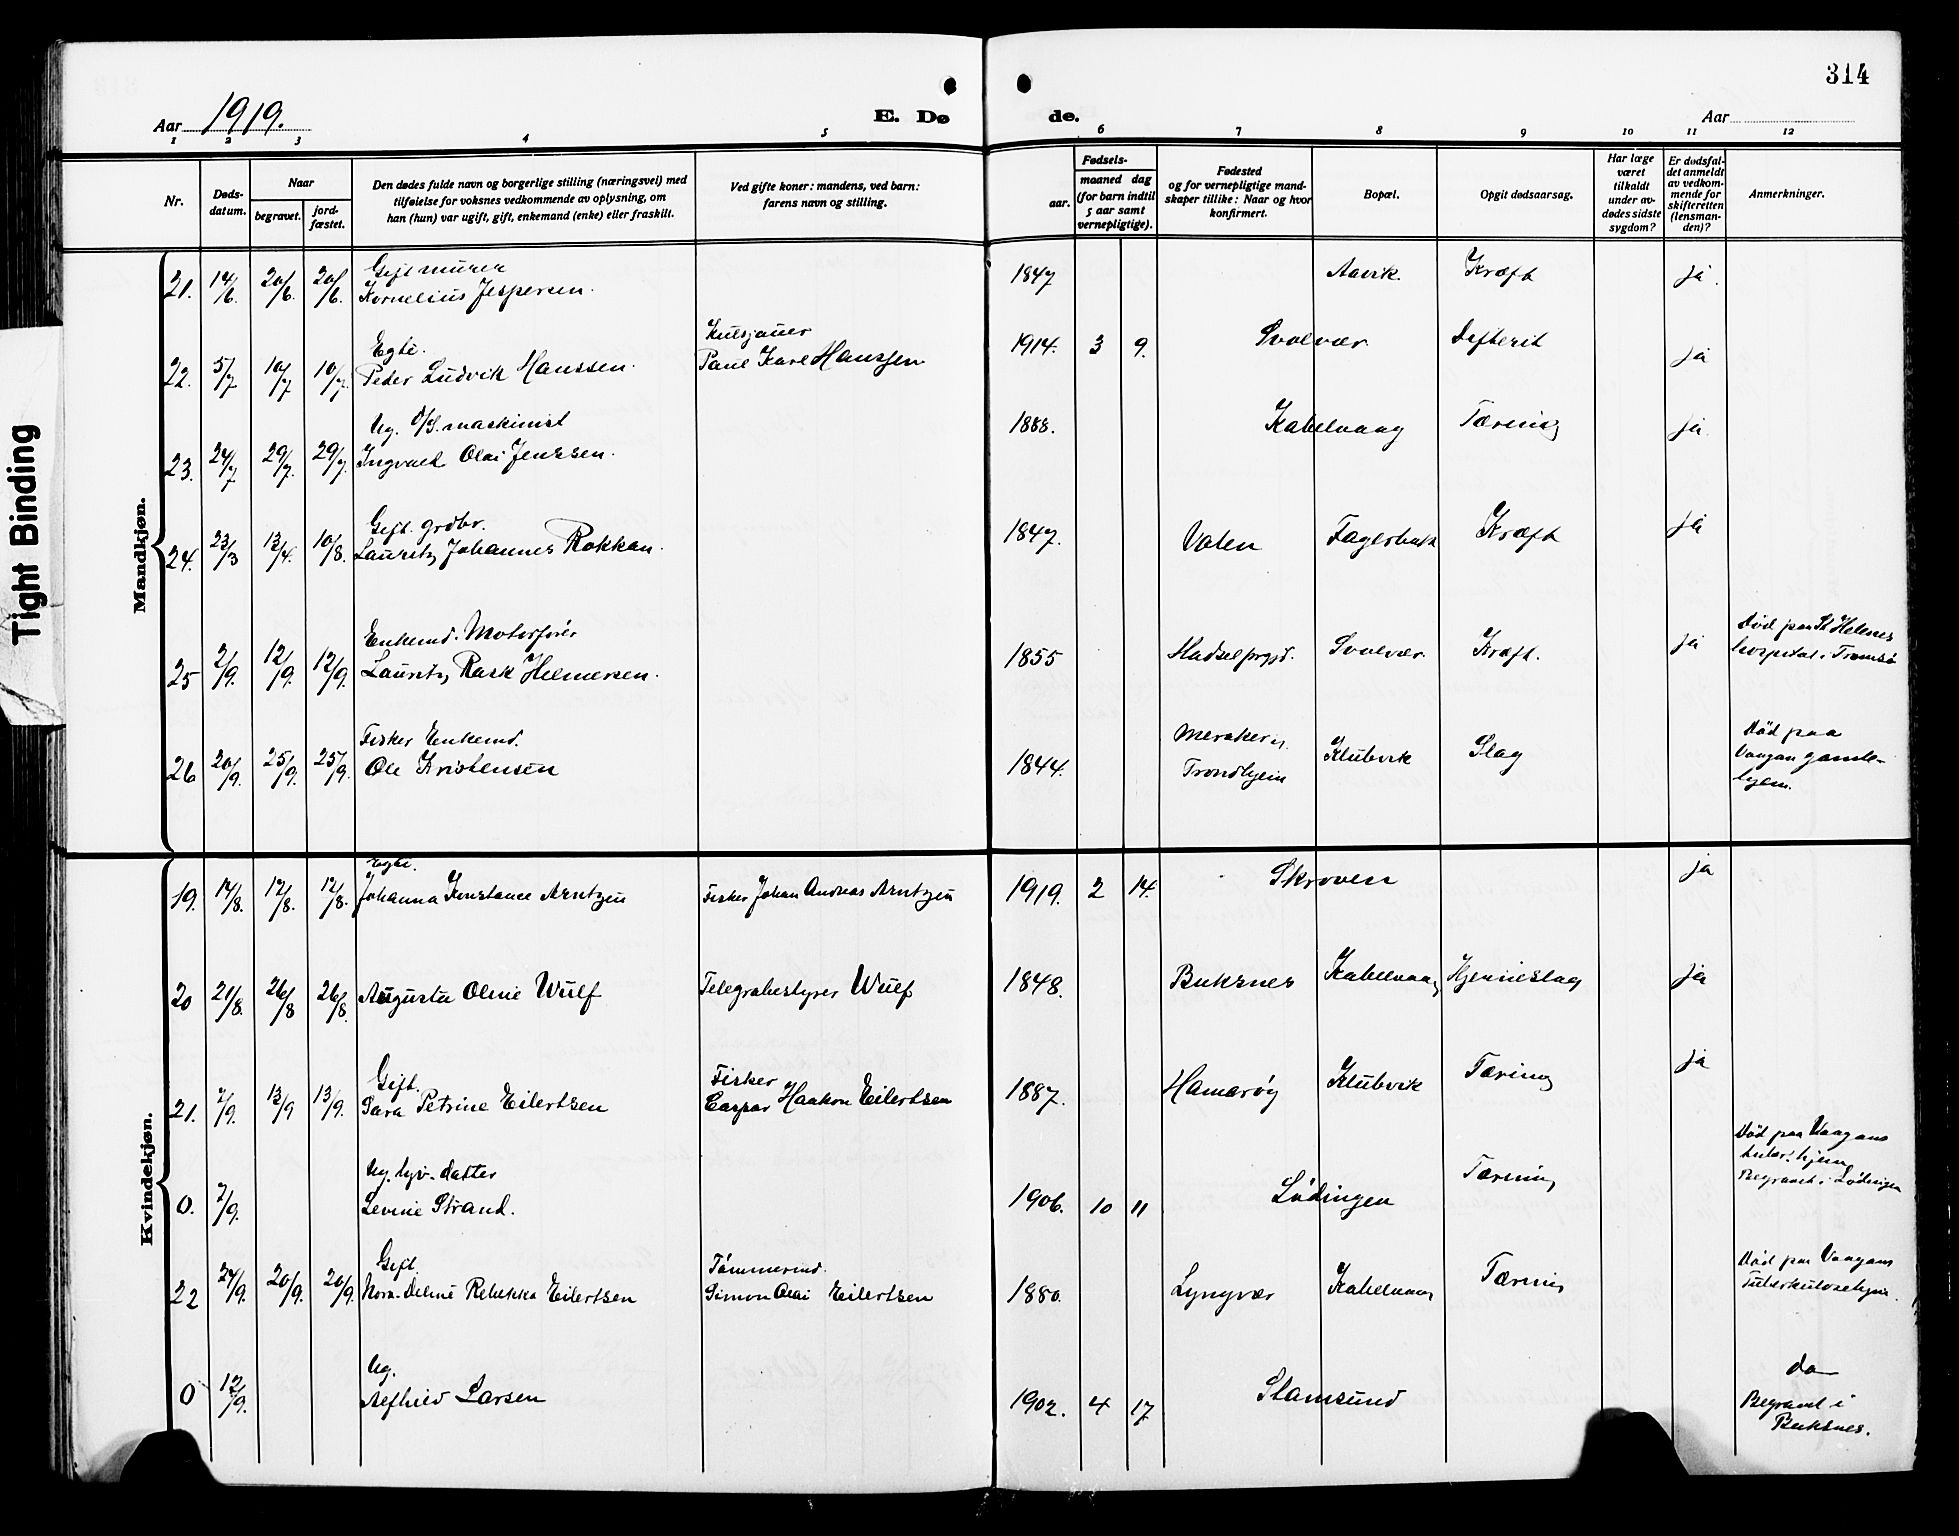 314
Aar 1919.
E. Dø
de.
Aar
1 2 3 4 5 6 7 8 9 10 11 12
Nr.
Døds-
datum.
Naar
begravet.
jord-
fæstet.
Den dødes fulde navn og borgerlige stilling (næringsvei) med
tilføielse for voksnes vedkommende av oplysning, om
han (hun) var ugift, gift, enkemand (enke) eller fraskilt.
Ved gifte koner: mandens, ved barn:
farens navn og stilling.
Fødsels-
aar.
maaned dag
(for barn indtil
5 aar samt
vernepligtige).
Fødested
og for vernepligtige mand-
skaper tillike: Naar og hvor
konfirmert.
Bopæl.
Opgit dødsaarsag.
Har læge
været
tilkaldt
under av-
dødes sidste
sygdom?
Er dødsfal-
det anmeldt
av vedkom-
mende for
skifteretten
(lensman-
den)?
Anmerkninger.
Tight Binding
Mandkjøn.
Gift murer
21. 14/6. 20/6. 20/6. Kornelius Jespersen. 1847 Aavik. Kræft ja.
Egte. Kulsjauer
22. 5/7 10/7 10/7. Peder Ludvik Hanssen. Paul Karl Hanssen 1914. 3 9. Svolvær Defterit ja
Ug. D/S. maskinist
23. 24/7 29/7. 29/7. Ingvald Olai Jenssen. 1888. Kabelvaag Tæring ja.
Gift. grdbr.
24. 23/3 13/4. 10/8. Lauritz Johannes Rokkan. 1847. Valen Kræft ja
Enkemd. Motorfører
25 2/9. 12/9. 12/9. Lauritz Rask Helmersen. 1855 Hadsel prgjd. Svolvær. Kræft. ja Død paa St Helenes
hospital i Tromsø
Fisker Enkemd.
26 20/9. 25/9. 25/9. Ole Kristensen 1844. Meraker
Trondhjem Klubvik Slag Død paa
Vaagan gamle-
hjem.
Kvindekjøn.
Egte.
19. 14/8. 12/8. 12/8. Johanna Konstance Arntzen Fisker Johan Andreas Arntzen 1919. 2 14. Skroven ja
20 21/8. 26/8 26/8. Augusta Oline Wulf Telegrafbestyrer Wulf 1848. Buksnes Kabelvaag Hjerneslag ja
Gift. Fisker
21. 7/9. 13/9 13/9. Sara Petrine Eilertsen Caspar Haakon Eilertsen 1887. Hamarøy Klubvik Tæring ja
Ug. datter
0. 7/9. Levine Strand. 1906. 10 11 Lødingen Tæring Død paa Vaagans
tuber. hjem
Begravet i Lødingen
Gift. Tømmermd.
22 24/9. 20/9. 20/9. Nora Deline Rebekka Eilertsen Simon Olai Eilertsen 1880. Lyngvær Kabelvaag Tæring Død paa Vaagans
Tuberkulosehjem.
Ug.
0 12/9. Alfhild Larsen 1902. 4 17 Stamsund do
Begravet i
Buksnes.